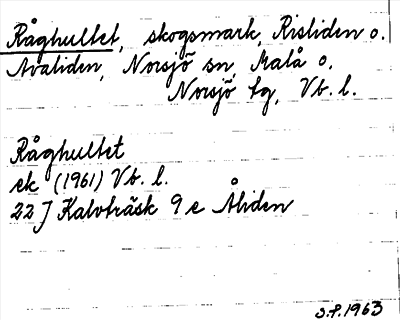 Råghultet, skogsmark, Risliden o.
Avaliden, Norsjö sn, Malå o.
Norsjö tg, Vb. l.
Råghultet
ek (1961) Vb. l.
22 J Kalvträsk 9 e Åliden
S.F. 1963